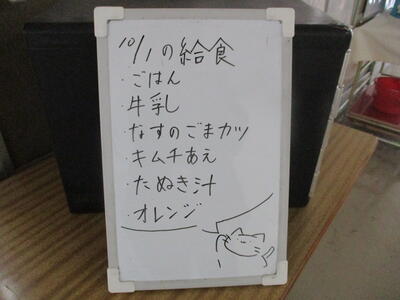 10/1の給食
・ごはん
・牛乳
・なすのごまカツ
・キムチあえ
・たぬき汁
・オレンジ